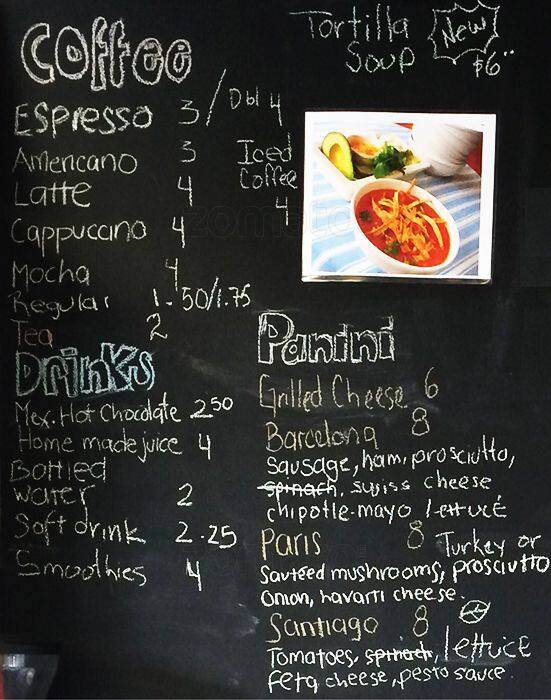 Coffee
Espresso 3/Dbl 4
Americano 3
Iced Coffee 4
Latte 4
Cappuccino 4
Mocha 4
Regular 1.50/1.75
Tea 2
Drinks
Mex. Hot Chocolate 2 50
Home made juice 4
Bottled
water 2
Soft drink 2.25
Smoothies 4
Tortilla
Soup
New
$6
Panini
Grilled Cheese 6
Barcelona 8
sausage, ham, prosciutto,
spinach, swiss cheese
chipotle-mayo lettuce
Paris 8 Turkey or
Sauteed mushrooms, prosciutto
onion, havarti cheese.
Santiago 8
Tomatoes, spinach, lettuce
feta cheese, pesto sauce.
zomato